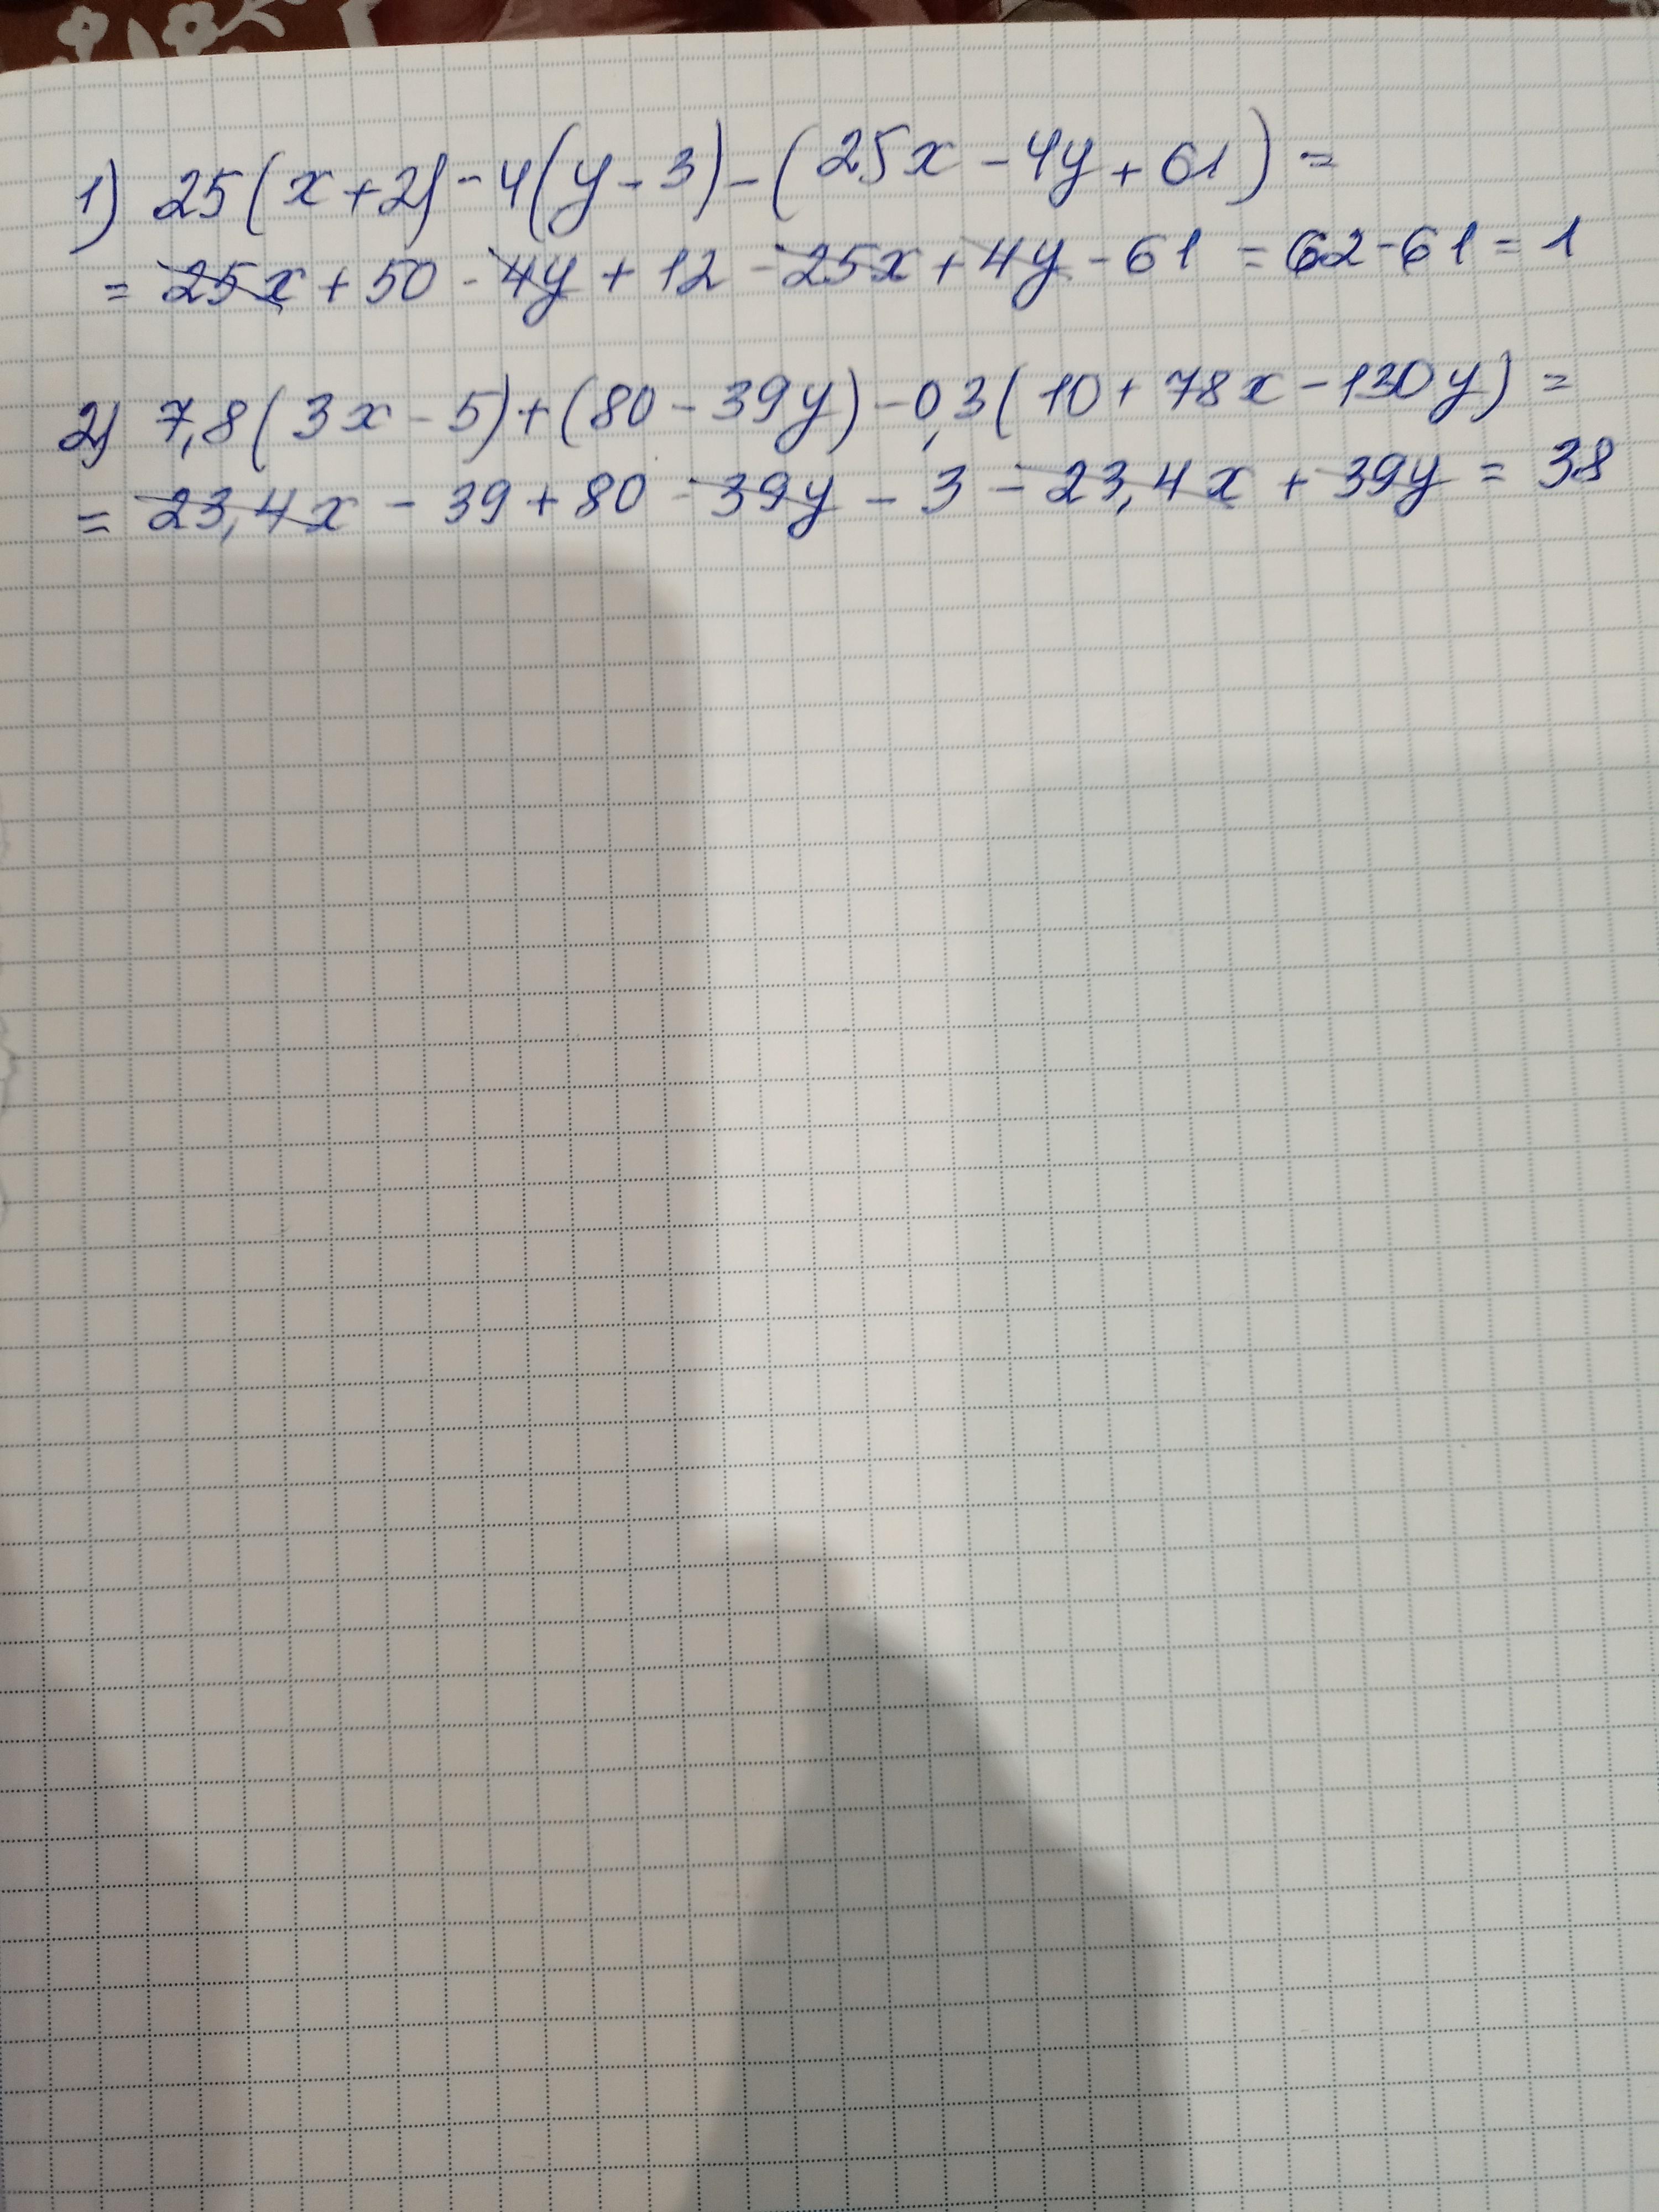 1) 25(x+2)-4(y-3)-(25x-4y+61)=
= 25x+50-4y+12-25x+4y-61=62-61=1
2) 7,8(3x-5)+(80-39y)-0,3(10+78x-130y)=
= 23,4x-39+80-39y-3-23,4x+39y=38